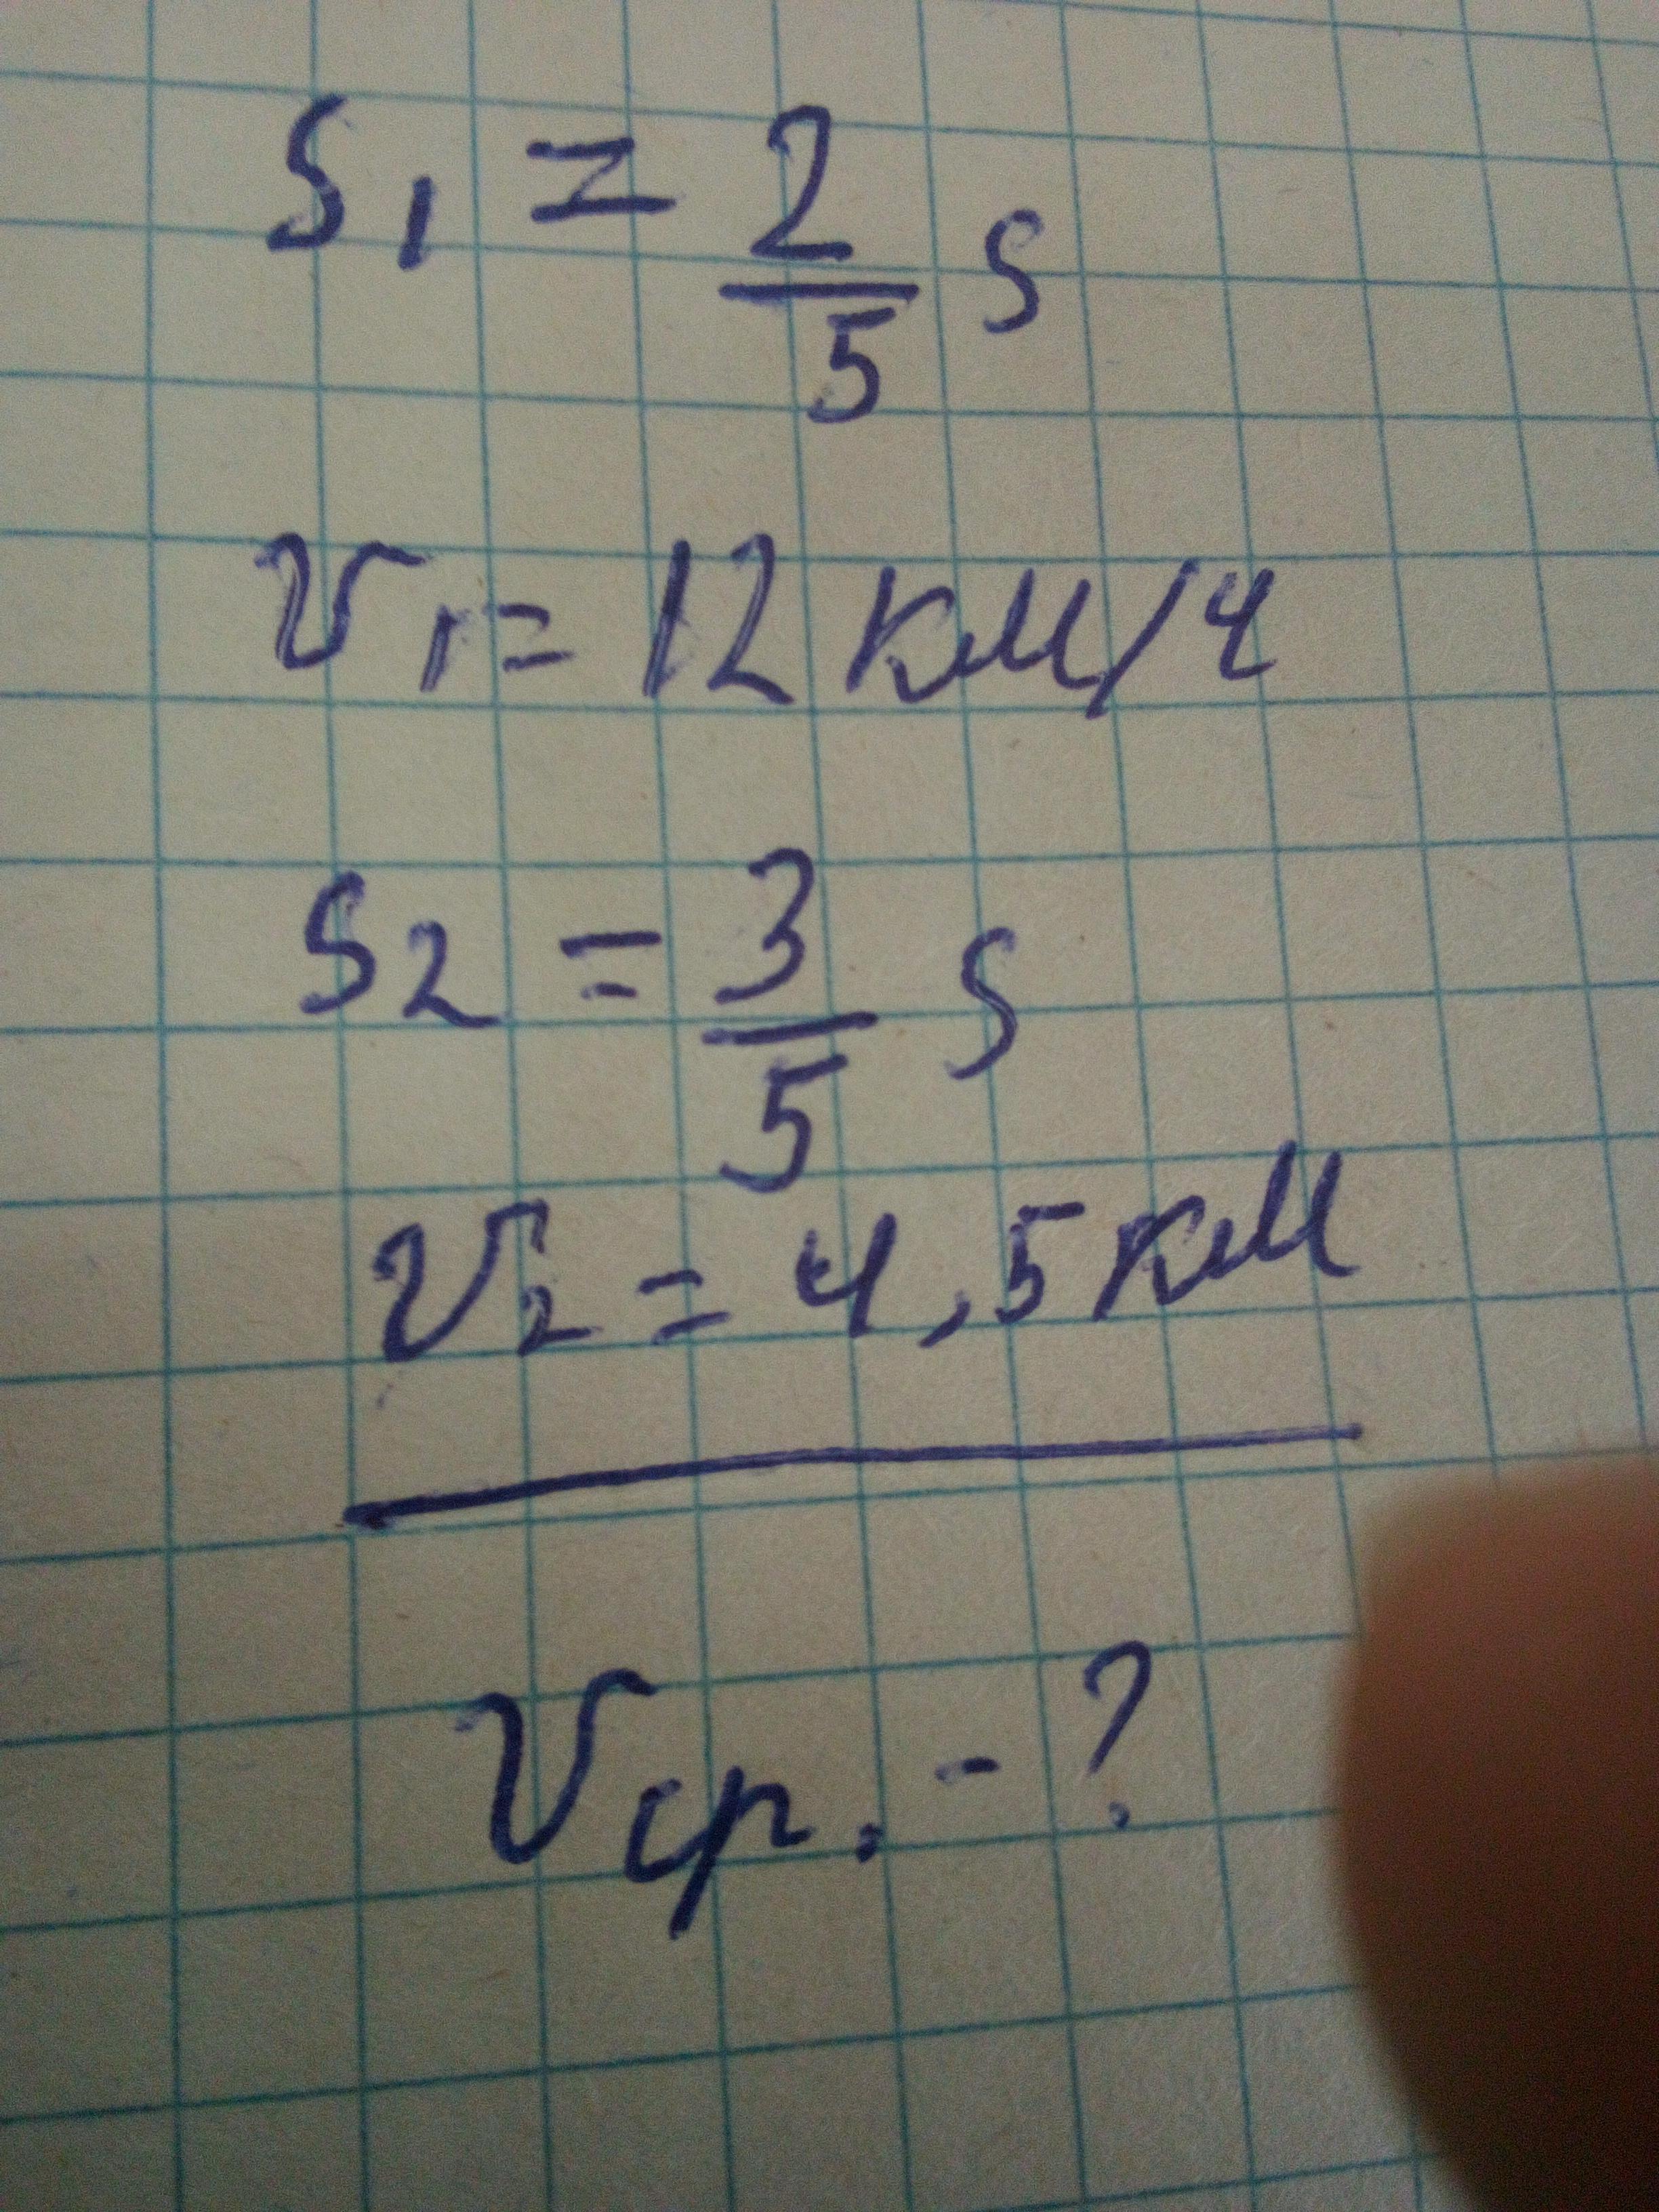 S₁ = 2/5 S
v₁ = 12 км/ч
S₂ = 3/5 S
v₂ = 4,5 км
vср. - ?